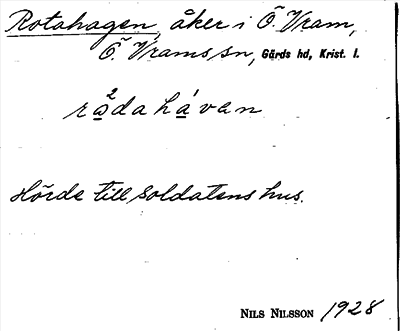 Rotahagen, åker i Ö. Vram,
Ö. Vrams sn, Gärds hd, Krist. l.
rå²dahávan
Hörde till soldatens hus.
NILS NILSSON 1928